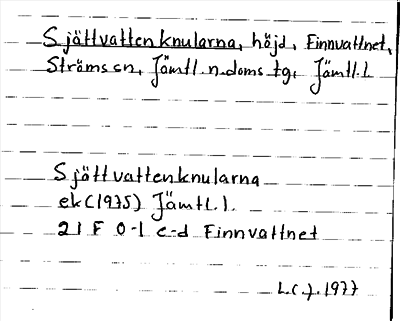 Sjättvattenknularna, höjd, Finnvattnet,
Ströms sn, Jämtl. n. doms. tg, Jämtl. l.
Sjättvattenknularna
ek (1975) Jämtl. l.
21 F 0-1 c-d Finnvattnet
L.C.J. 1977